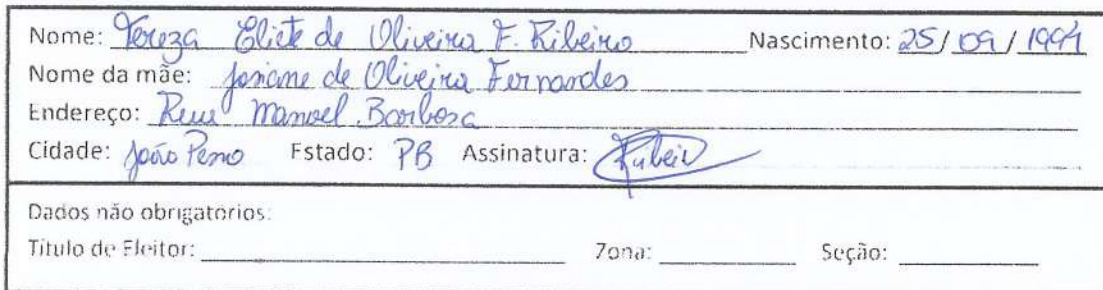 Nome: Tereza Eliete de Oliveira F. Ribeiro Nascimento: 25/09/1994
Nome da mãe: Josiane de Oliveira Fernandes
Endereço: Rua Manoel Barbosa
Cidade: João Pesso Estado: PB Assinatura: Ribeiro
Dados não obrigatórios:
Título de Eleitor: Zona: Seção: